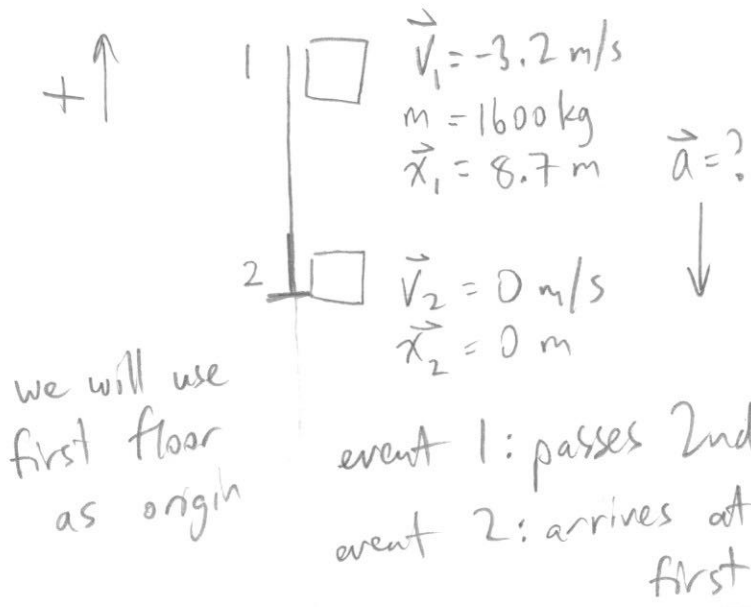 +
1
v⃗₁ = -3.2 m/s
m = 1600 kg
x⃗₁ = 8.7 m
a⃗ = ?
2
v⃗₂ = 0 m/s
x⃗₂ = 0 m
we will use
first floor
as origin
event 1: passes 2nd
event 2: arrives at
first